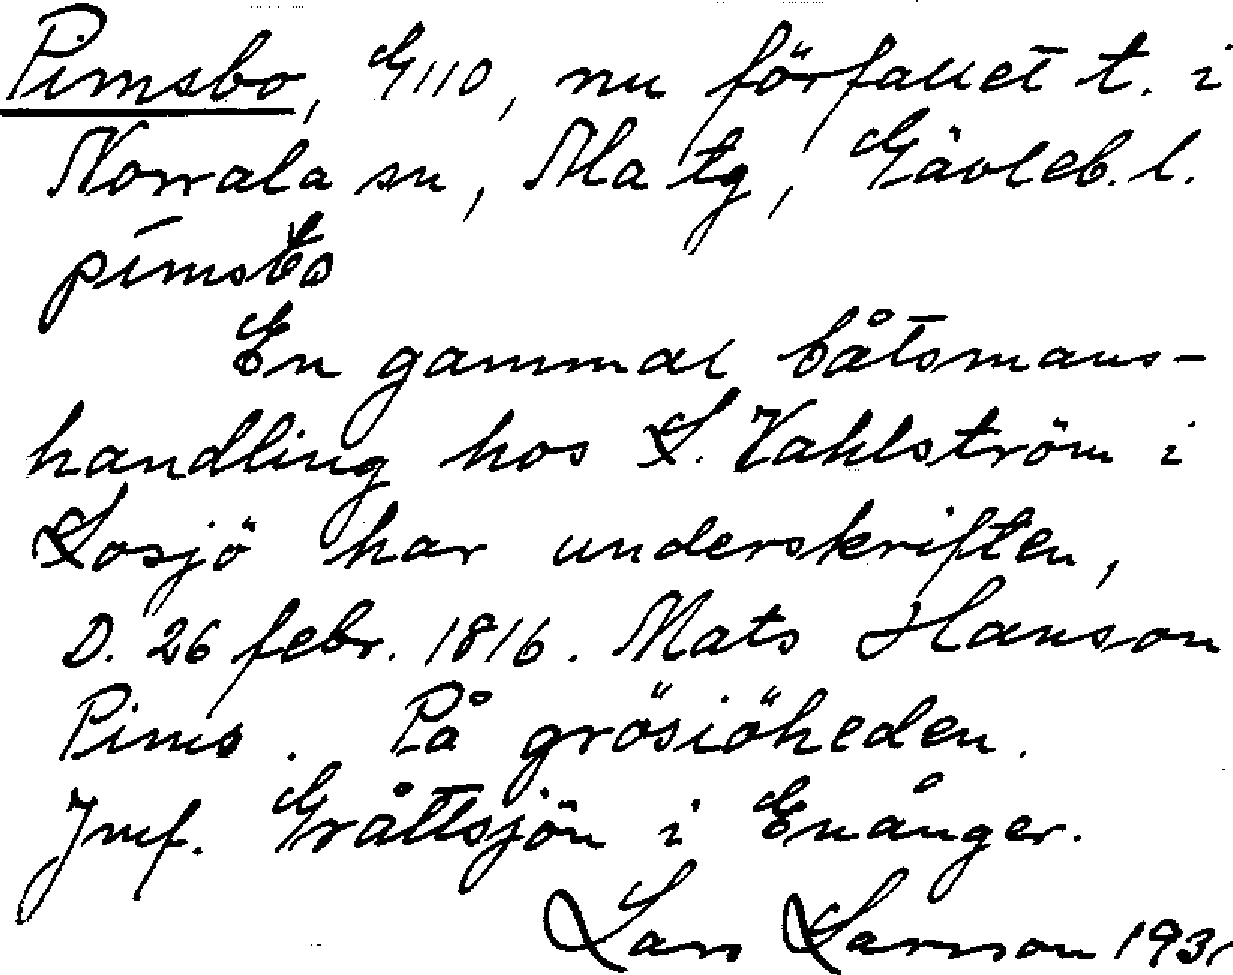 Pimsbo, G110, nu förfallet t. i
Norrala sn, Ma tg, Gävleb. l.
pimsbo
En gammal båtsmans-
handling hos L. Vahlström i
Losjö har underskriften,
D. 26 febr. 1816. Mats Hanson
Pims. På grösiöheden.
Jmf. Gråttsjön i Enånger.
Lars Larsson